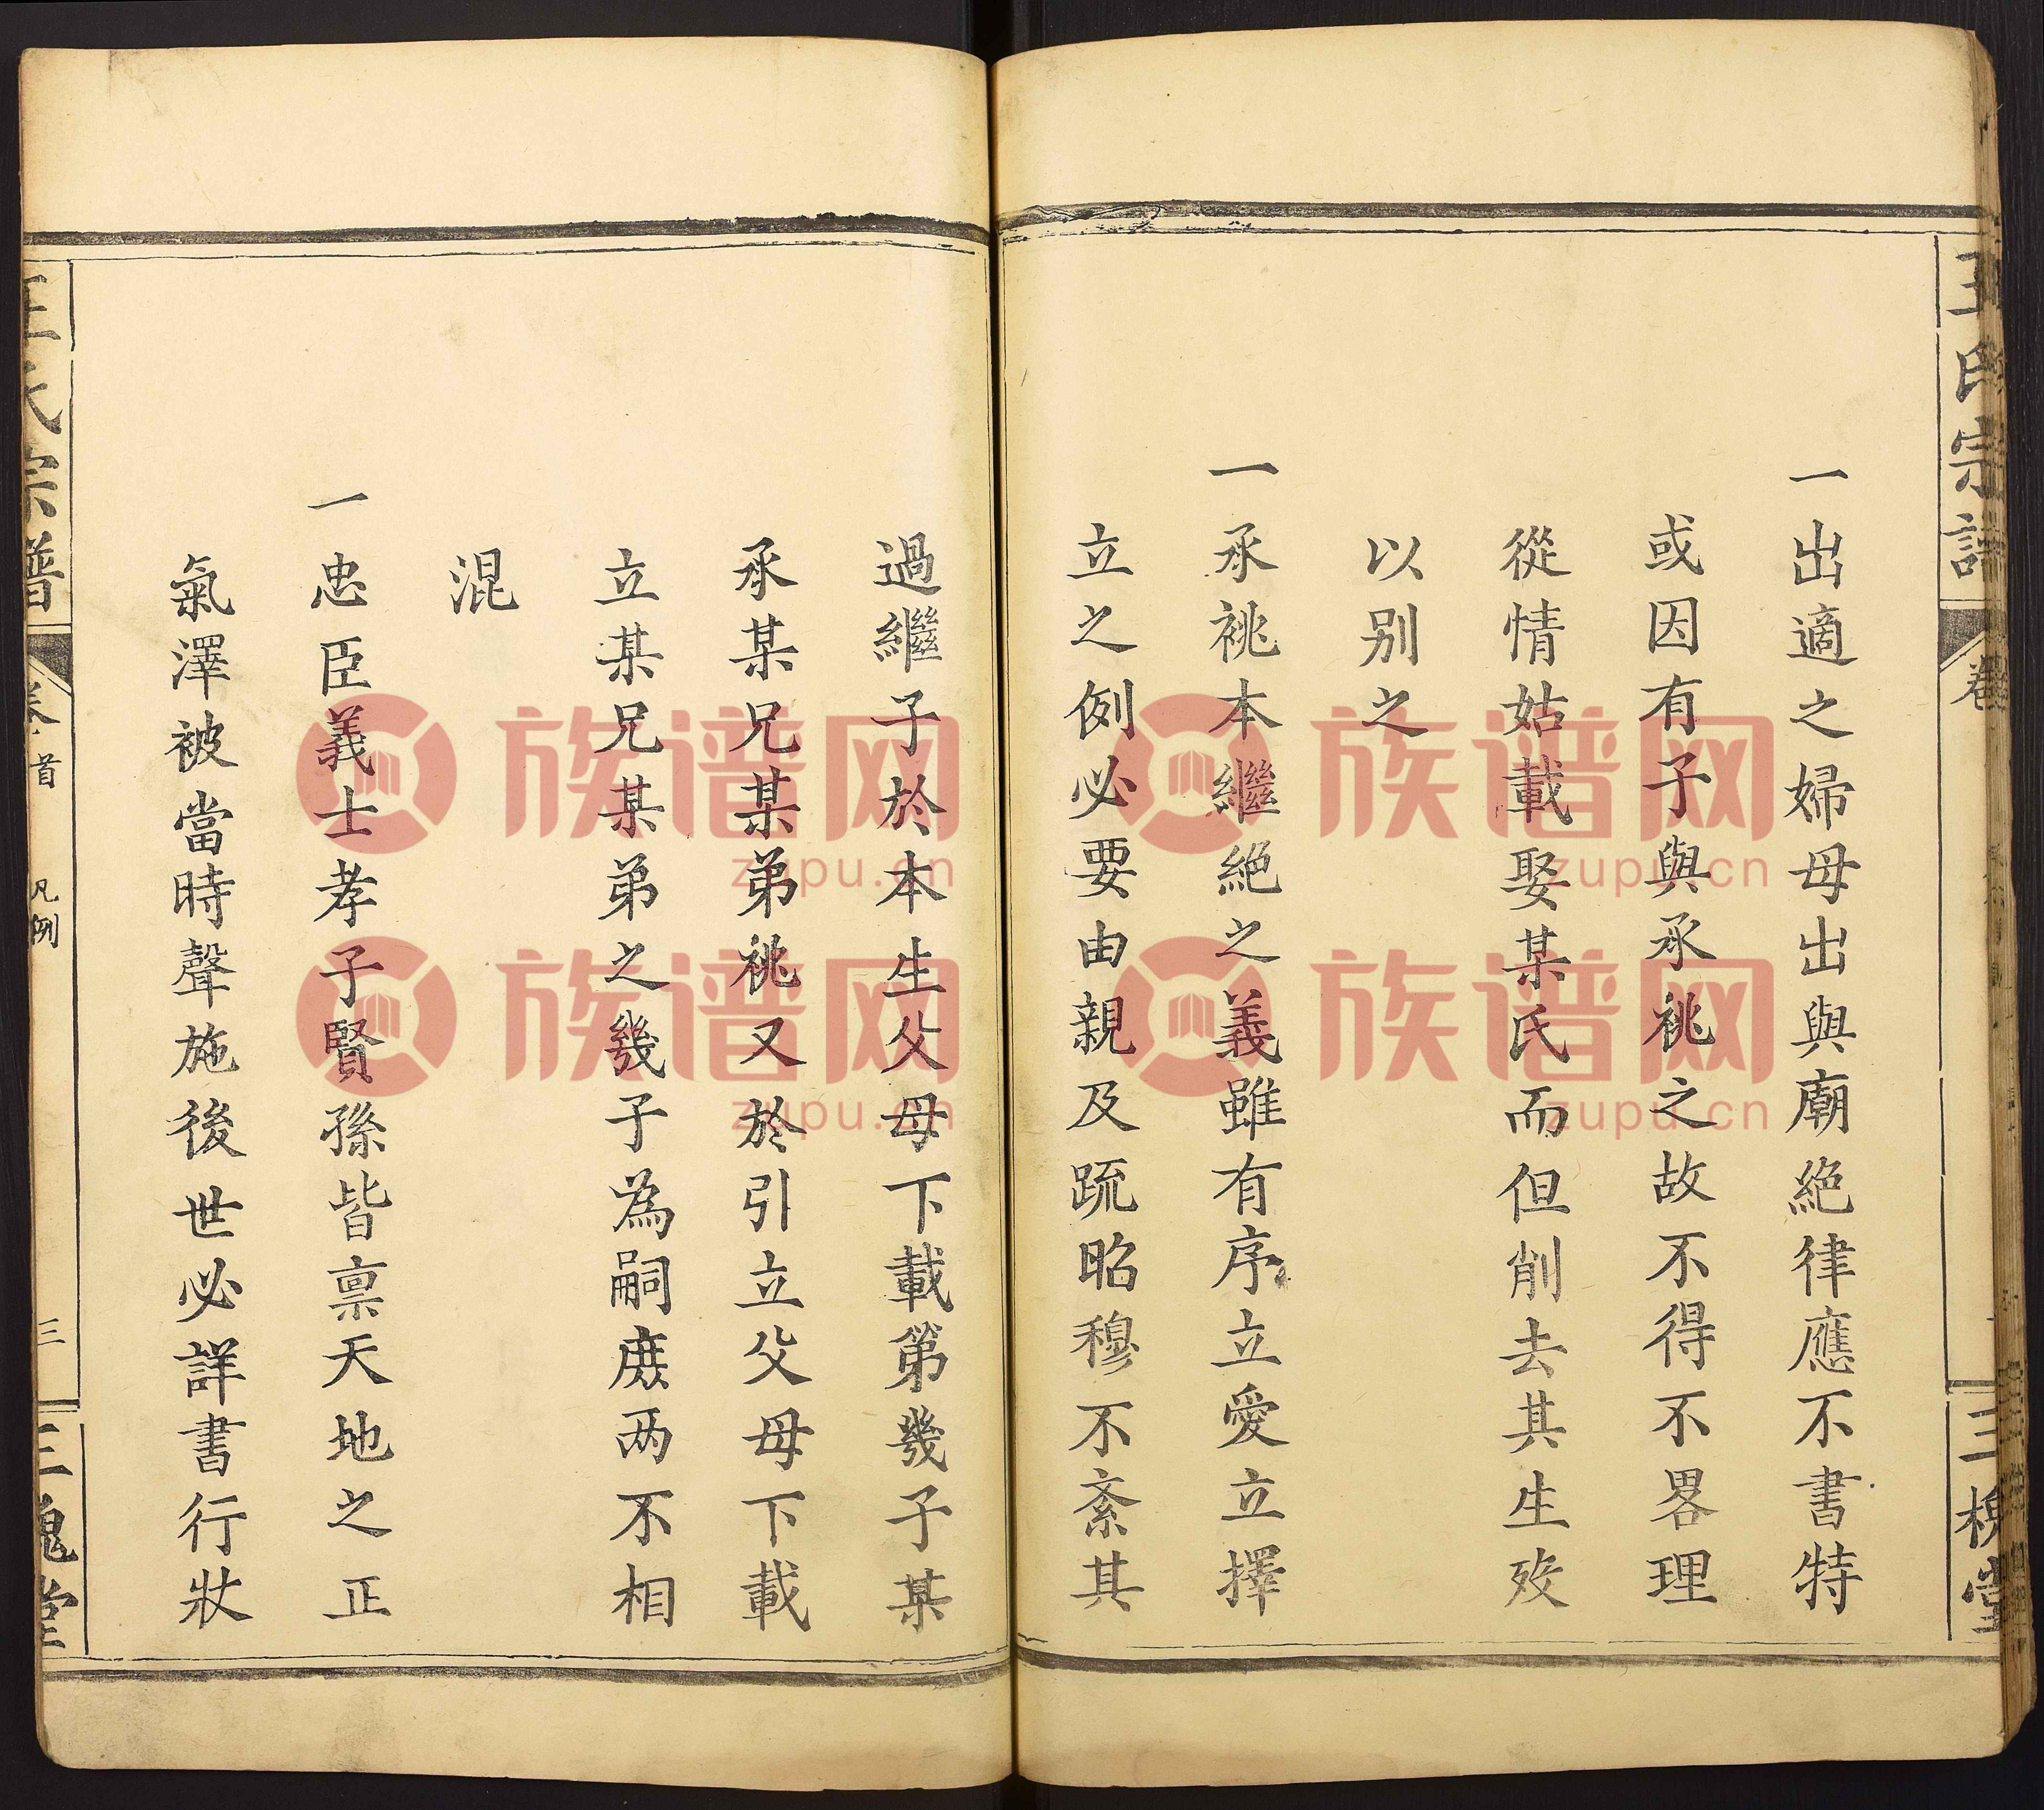 王氏宗譜
卷
三槐堂
一出適之婦母出與廟絶律應不書特
或因有子與承祧之故不得不畧理
從情姑載娶某氏而但削去其生殁
以别之
一承祧本繼絶之義雖有序立愛立擇
立之例必要由親及疏昭穆不紊其
過繼子於本生父母下載第幾子某
承某兄某弟祧又於引立父母下載
立某兄某弟之幾子為嗣庶两不相
混
一忠臣義士孝子賢孫皆禀天地之正
氣澤被當時聲施後世必詳書行狀
王氏宗譜
卷首
凡例
三
三槐堂
族谱网
zupu.cn
族谱网
zupu.cn
族谱网
zupu.cn
族谱网
zupu.cn